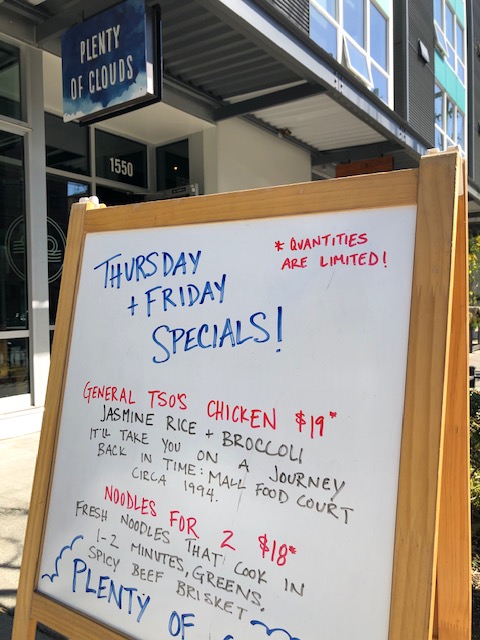 PLENTY
OF CLOUDS
1550
* QUANTITIES
ARE LIMITED!
THURSDAY
+ FRIDAY
SPECIALS!
GENERAL TSO'S CHICKEN $19*
JASMINE RICE + BROCCOLI
IT'LL TAKE YOU ON A JOURNEY
BACK IN TIME: MALL FOOD COURT
CIRCA 1994.
NOODLES FOR 2 $18*
FRESH NOODLES THAT COOK IN
1-2 MINUTES, GREENS,
SPICY BEEF BRISKET
PLENTY OF